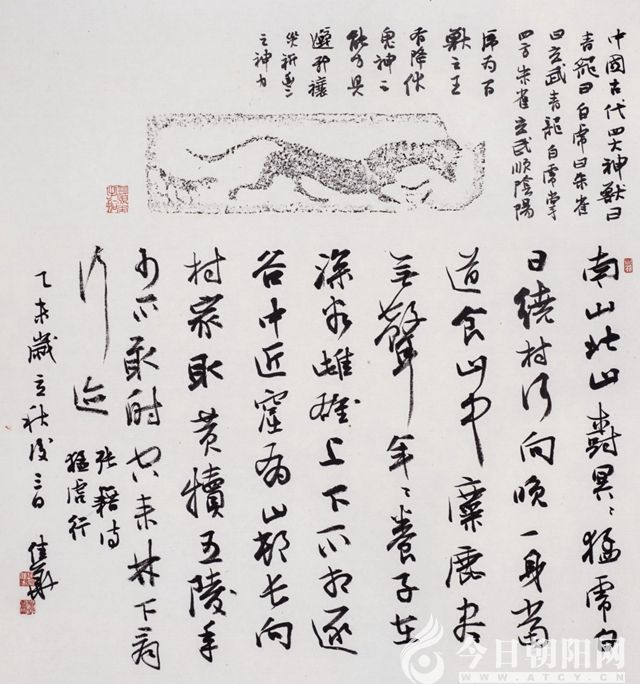 中國古代四大神獸曰
青龍曰白虎曰朱雀
曰玄武青龍白虎掌
四方朱雀玄武順陰陽
虎为百
獸之王
有降伏
鬼神之
能力具
避邪禳
災祈豐
之神力
南山北山樹冥〻猛虎白
日繞村行向晚一身當
道食山中麋鹿尽
無聲年〻養子在
深谷雌雄上下不相逐
谷中近窟有山邨长向
村家取黄犢五陵年
少不敢射空来林下看
行迹
张籍诗
猛虎行
乙未歲立秋後三日
今日朝阳网
WWW.ATCY.CN